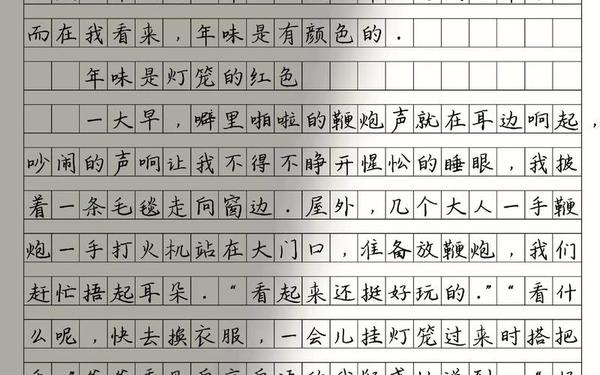 而在我看来，年味是有颜色的.
年味是灯笼的红色
一大早，噼里啪啦的鞭炮声就在耳边响起，
吵闹的声响让我不得不睁开惺忪的睡眼，我披
着一条毛毯走向窗边.屋外，几个大人一手鞭
炮一手打火机站在大门口，准备放鞭炮，我们
赶忙捂起耳朵.“看起来还挺好玩的.”“看什
么呢，快去换衣服，一会儿挂灯笼过来时搭把